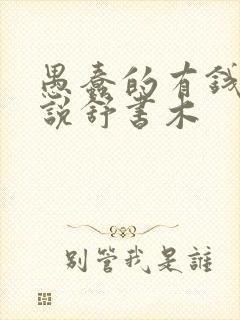 愚蠢的有錢
說舒書木
別管我是誰